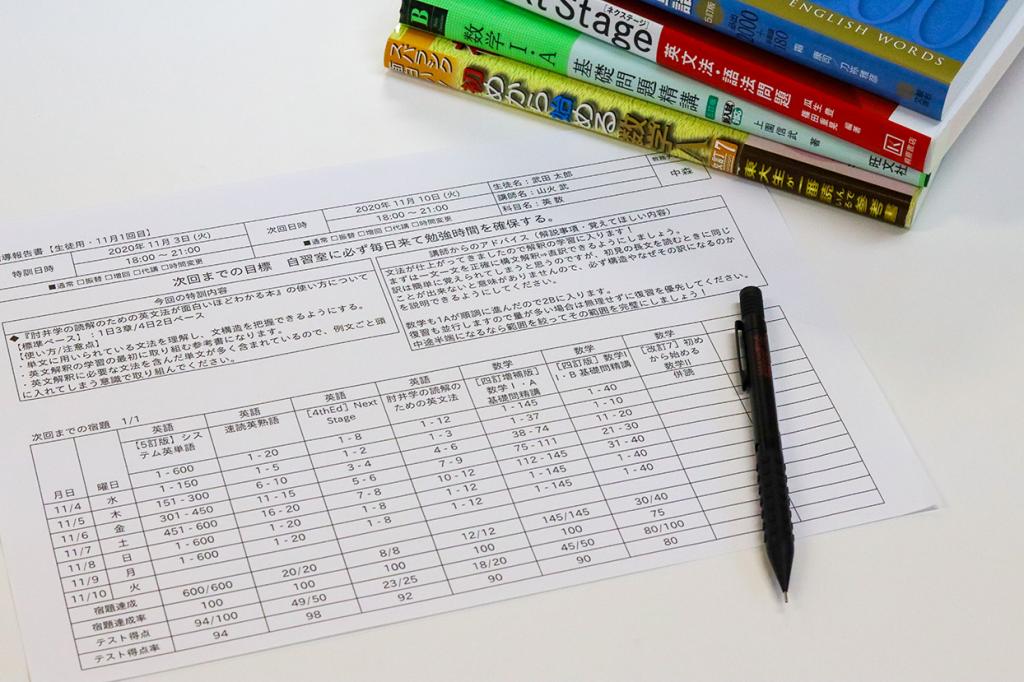 ENGLISH WORDS
5訂版
Stage
[ネクステージ]
英文法・語法問題
瓜生豊
篠田重晃
編著
桐原書店
B
数学Ⅰ・A
基礎問題精講
上園信武 著
旺文社
初めから始める数学A
改訂7
東大生が一番読んでる参考書
導報告書【生徒用・11月1回目】
特訓日時
2020年 11月 3日 (火)
18:00 ~ 21:00
■通常 □振替 □増回 □代講 □時間変更
次回日時
2020年 11月 10日 (火)
18:00 ~ 21:00
■通常 □振替 □増回 □代講 □時間変更
生徒名:武田 太郎
講師名:山火 武
科目名:英 数
中森
次回までの目標 自習室に必ず毎日来て勉強時間を確保する。
今回の特訓内容
◆『肘井学の読解のための英文法が面白いほどわかる本』の使い方について
【標準ペース】:1日3章/4日2日ペース
【使い方/注意点】
・単文に用いられている文法を理解し、文構造を把握できるようにする。
・英文解釈の学習の最初に取り組む参考書になります。
・英文解釈に必要な文法を含んだ単文が多く含まれているので、例文ごと頭
に入れてしまう意識で取り組んでください。
講師からのアドバイス(解説事項・覚えてほしい内容)
文法が仕上がってきましたので解釈の学習に入ります!
まずは一文一文を正確に構文解釈⇒直訳できるようにしましょう。
訳は簡単に覚えられてしまうと思うのですが、初見の長文を読むときに同じ
ことが出来ないと意味がありませんので、必ず構造やなぜその訳になるのか
を説明できるようにしてください。
数学も1Aが順調に進んだので2Bに入ります。
復習も並行しますので量が多い場合は無理せずに復習を優先してください。
中途半端になるなら範囲を絞ってその範囲を完璧にしましょう!
次回までの宿題 1/1
月日 曜日 英語 英語 英語 英語 数学 数学 数学
【5訂版】システム英単語 速読英熟語 [4thEd] Next Stage 肘井学の読解のための英文法 【四訂増補版】数学Ⅰ・A 基礎問精講 【四訂版】数学Ⅱ・B 基礎問精講 【改訂7】初めから始める数学Ⅱ 併読
1 - 600 1 - 20 1 - 8 1 - 12 1 - 145 1 - 40
11/4 水 1 - 150 1 - 5 1 - 2 1 - 3 1 - 37 1 - 10
11/5 木 151 - 300 6 - 10 3 - 4 4 - 6 38 - 74 11 - 20
11/6 金 301 - 450 11 - 15 5 - 6 7 - 9 75 - 111 21 - 30
11/7 土 451 - 600 16 - 20 7 - 8 10 - 12 112 - 145 31 - 40
11/8 日 1 - 600 1 - 20 1 - 8 1 - 12 1 - 145 1 - 40
11/9 月 1 - 600 1 - 20 1 - 8 1 - 12 1 - 145 1 - 40
11/10 火
宿題達成 600/600 20/20 8/8 12/12 145/145 30/40
宿題達成率 100 100 100 100 100 75
テスト得点 94/100 49/50 23/25 18/20 45/50 80/100
テスト得点率 94 98 92 90 90 80